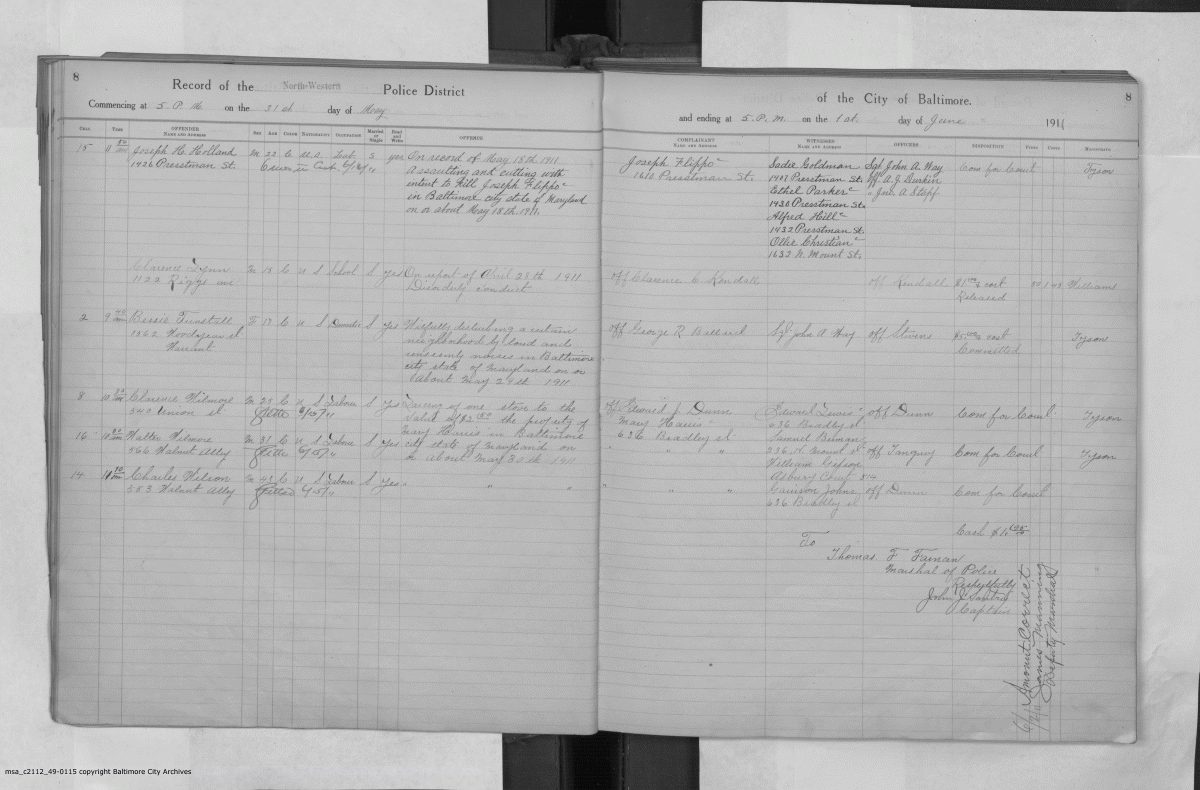 8
Record of the North-Western Police District
Commencing at 5 P.M. on the 31st day of May
Cell Time Offender Name and Address Sex Age Color Nationality Occupation Married or Single Read and Write Offence
15 11 Joseph H. Holland M 22 C U.S. S yes On record of May 18th 1911
1426 Presstman St. Assaulting and cutting with
intent to kill Joseph Flippo
in Baltimore city state of Maryland
on or about May 18th 1911.
Clarence Lynn M 18 C U S School S Yes On report of April 28th 1911
1122 Riggs ave Disorderly conduct
2 9 Bessie Tunstall F 19 C U S Domestic S Yes Wilfully disturbing a certain
1562 Woodyear st neighborhood by loud and
Warrant unseemly noises in Baltimore
city state of Maryland on or
about May 29th 1911
8 10 Clarence Wilmore M 25 C U S Labour S Yes Larceny of one stove to the
540 Union st value of $2 the property of
16 10 Walter Wilmore M 31 C U S Labour S Yes Mary Harris in Baltimore
566 Walnut Alley city state of Maryland on
or about May 30th 1911
14 11 Charles Wilson M 43 C U S Labour S Yes " " "
553 Walnut Alley
8
of the City of Baltimore.
and ending at 5. P.M. on the 1st day of June 1911
Complainant Name and Address Witnesses Name and Address Officers Disposition Fines Costs Magistrate
Joseph Flippo Sadie Goldman Sgt John A. Way Com for Court Tyson
1610 Presstman St. 1407 Presstman St. Off A. J. Durkin
Ethel Parker " Jno. A. Stapf
1430 Presstman St.
Alfred Hill
1432 Presstman St.
Ollie Christian
1632 N. Mount St.
Off Clarence C. Kendall Off Kendall $1 & cost Williams
Released
Off George R. Ballard Sgt John A Way Off Stivers $5 & cost Tyson
Committed
Off Edward J. Dunn Edward Lewis Off Dunn Com for Court Tyson
Mary Harris 636 Bradley st
636 Bradley st Samuel
" " " 236 N. Mount st Off Tanguy Com for Court Tyson
William
Asbury Court
" " " Garrison Johns Off Dunn Com for Court
636 Bradley st
Cash $1.
To
Thomas F Farnan
Marshal of Police
Respectfully
John
Captain
Amount Correct
James Manning
Deputy Marshal
msa_c2112_49-0115 copyright Baltimore City Archives